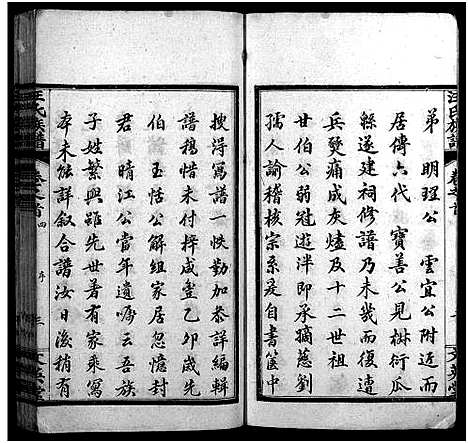 弟　明瑆公　雲宜公附近而
居傳六代　寶善公見椒衍瓜
緜遂建祠修譜乃未幾而復遭
兵燹痛成灰燼及十二世祖
世伯公弱冠遊泮即承嫡慈劉
孺人諭稽核宗系爰自書箧中
搜得寫譜一帙勤加叅詳編輯
譜稿惜未付梓咸豐乙卯歲先
伯　玉恬公解組家居忽憶封
君　晴江公當年遺嘱云吾族
子姓繁興雖先世著有家乘寫
本未能詳叙合譜汝日後稍有
汪氏族譜
卷之首
四
序
三
文英堂